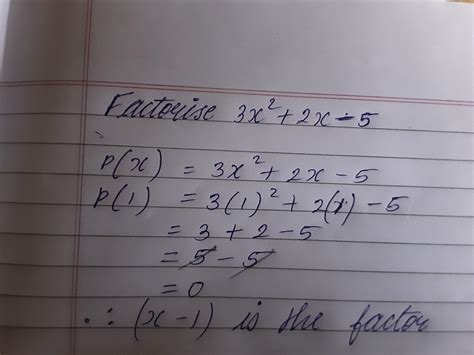 Factorise 3x² + 2x - 5
p(x) = 3x² + 2x - 5
p(1) = 3(1)² + 2(1) - 5
= 3 + 2 - 5
= 5 - 5
= 0
∴ (x - 1) is the factor